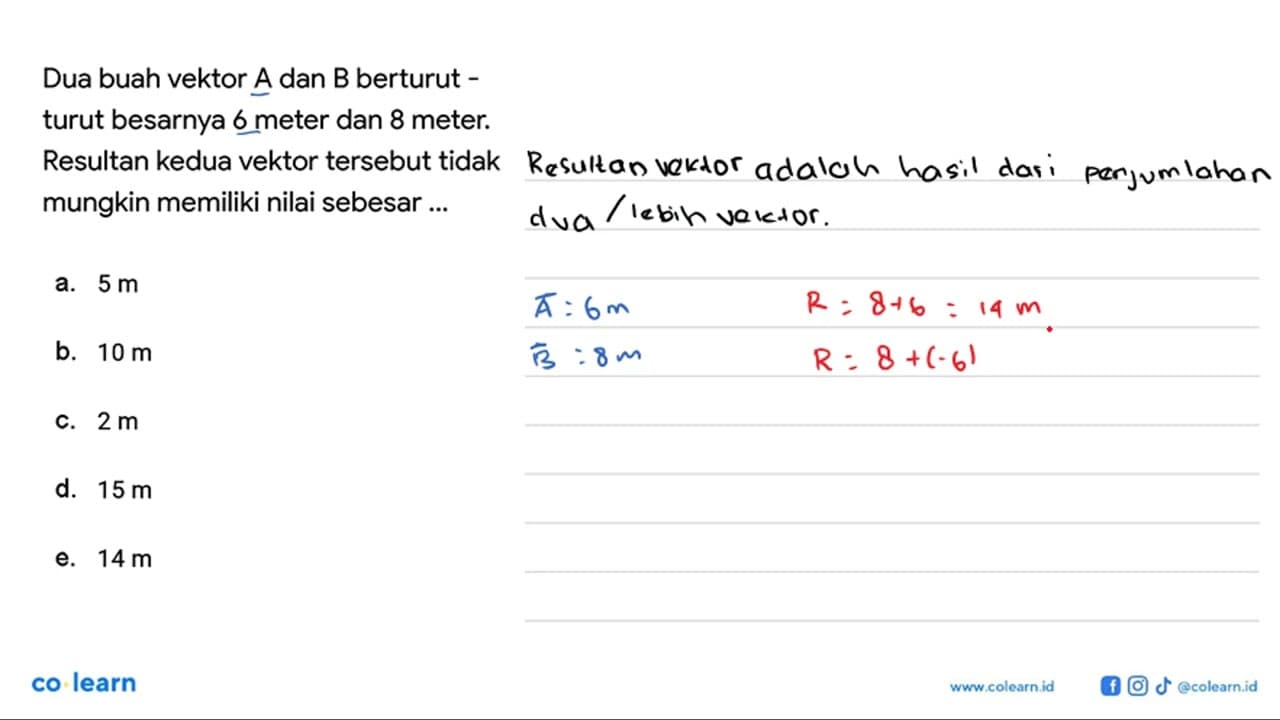 Dua buah vektor A dan B berturut -
turut besarnya 6 meter dan 8 meter.
Resultan kedua vektor tersebut tidak
mungkin memiliki nilai sebesar ...
a. 5 m
b. 10 m
c. 2 m
d. 15 m
e. 14 m
Resultan vektor adalah hasil dari perjumlahan
dua / lebih vektor.
A̅ : 6 m
B̅ : 8 m
R = 8+6 = 14 m
R = 8 + (-6)
co learn
www.colearn.id
@colearn.id